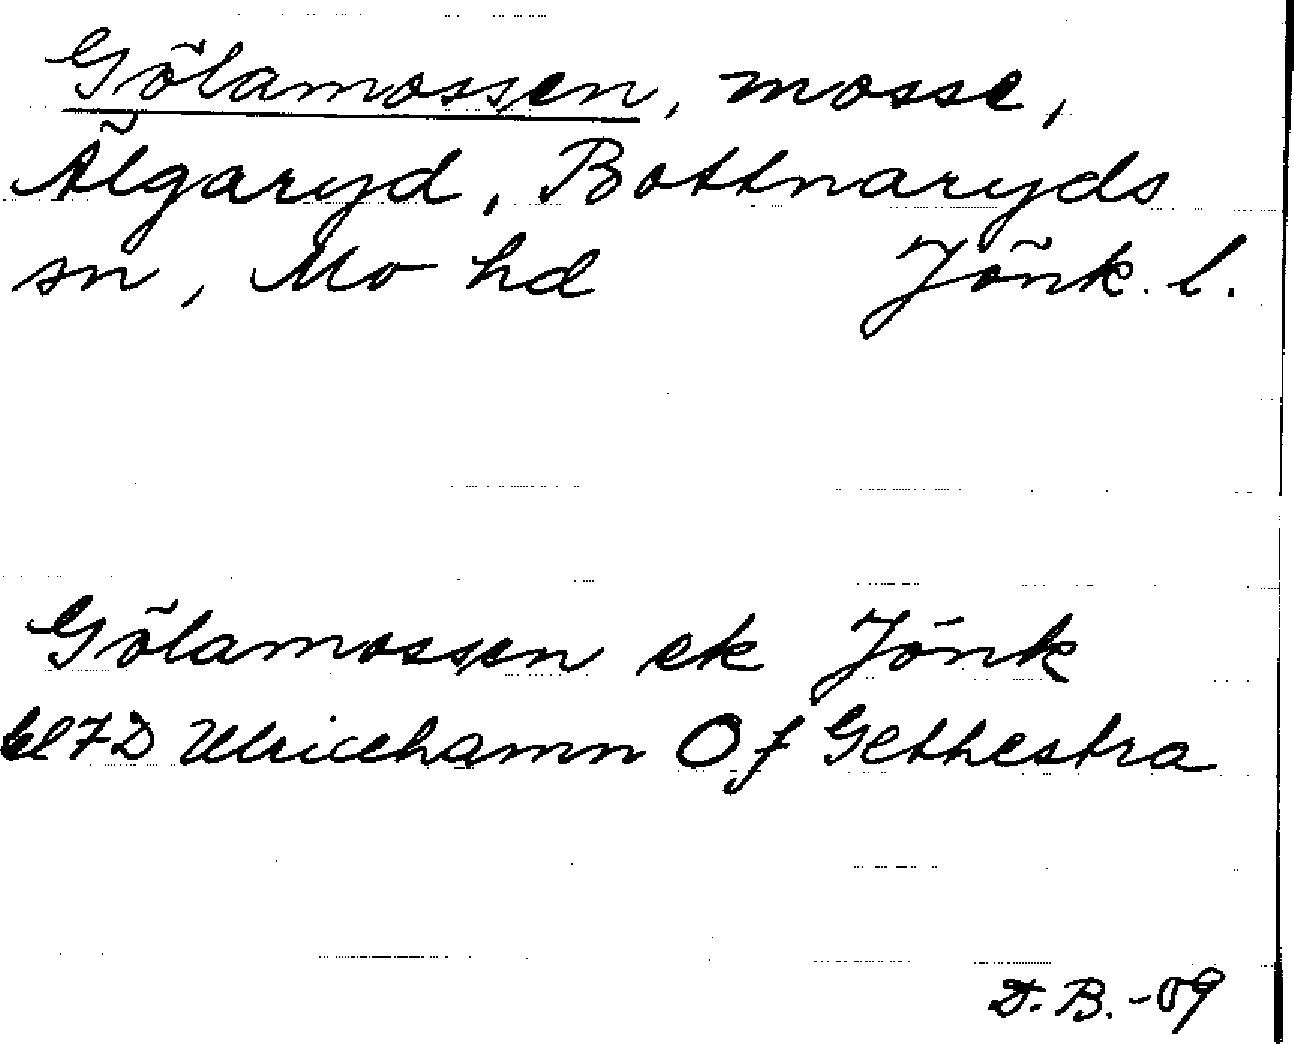 Gölamossen, mosse,
Älgaryd, Bottnaryds
sn, Mo hd Jönk. l.
Gölamossen ek Jönk
bl 7D Ulricehamn Of Gethestra
D. B. -09